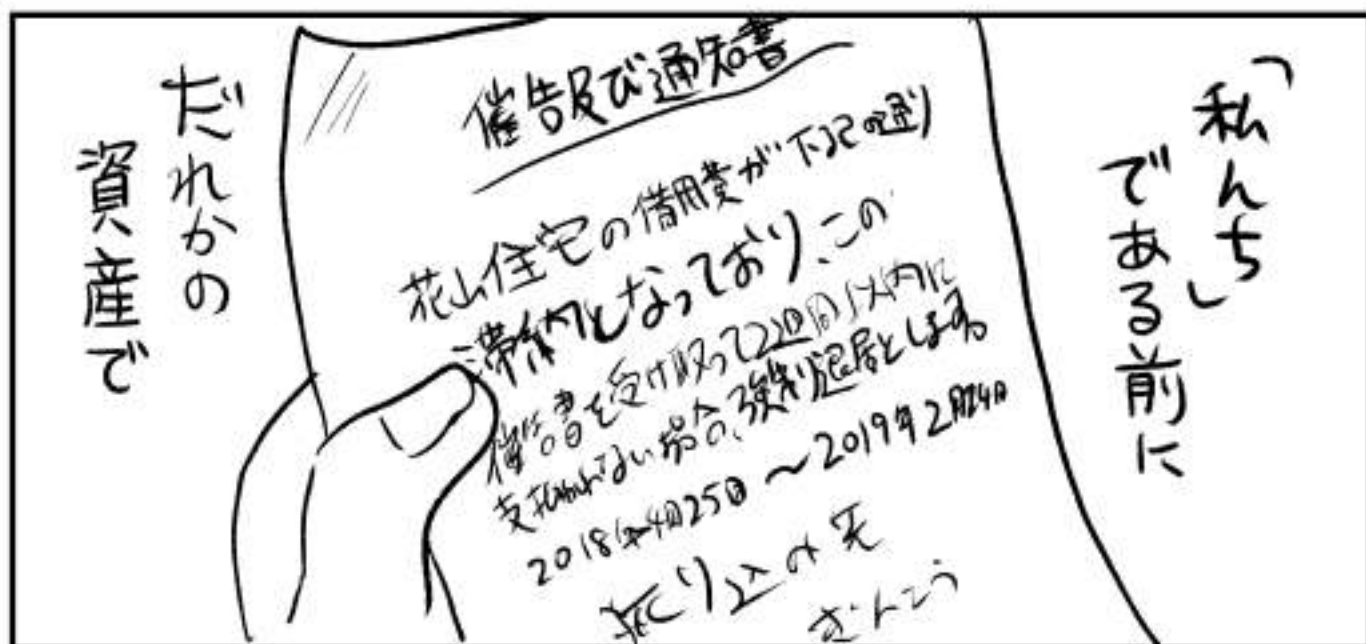 「私んち」
である前に
催告及び通知書
花山住宅の借用費が下記の通り
滞納となっており、この
催告書を受け取って2週間以内に
支払われない場合、強制退居とします
2018年4月25日〜2019年2月24日
振り込み先
ぎんこう
だれかの
資産で